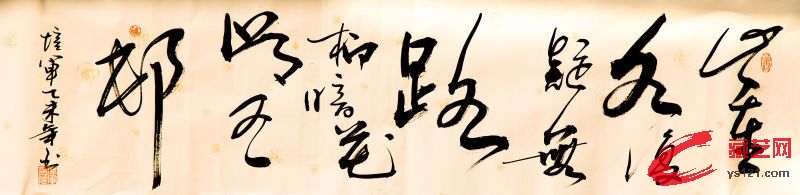 山重
水復
疑無
路
柳暗花
明又一
邨
培軍乙未年书
藏艺网
ys121.com